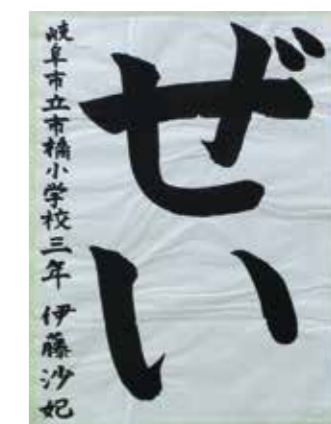 ぜい
岐阜市立市橋小学校三年 伊藤沙妃